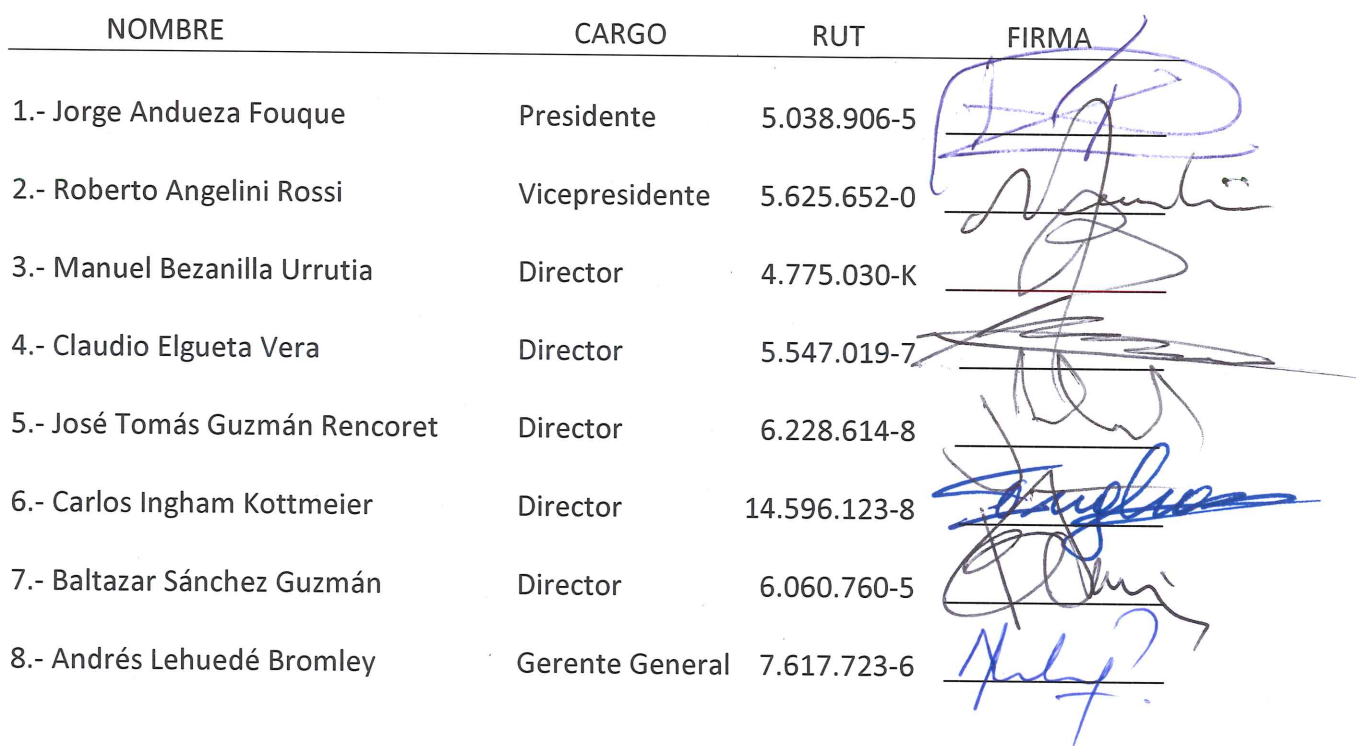 NOMBRE CARGO RUT FIRMA
1.- Jorge Andueza Fouque Presidente 5.038.906-5
2.- Roberto Angelini Rossi Vicepresidente 5.625.652-0
3.- Manuel Bezanilla Urrutia Director 4.775.030-K
4.- Claudio Elgueta Vera Director 5.547.019-7
5.- José Tomás Guzmán Rencoret Director 6.228.614-8
6.- Carlos Ingham Kottmeier Director 14.596.123-8
7.- Baltazar Sánchez Guzmán Director 6.060.760-5
8.- Andrés Lehuedé Bromley Gerente General 7.617.723-6